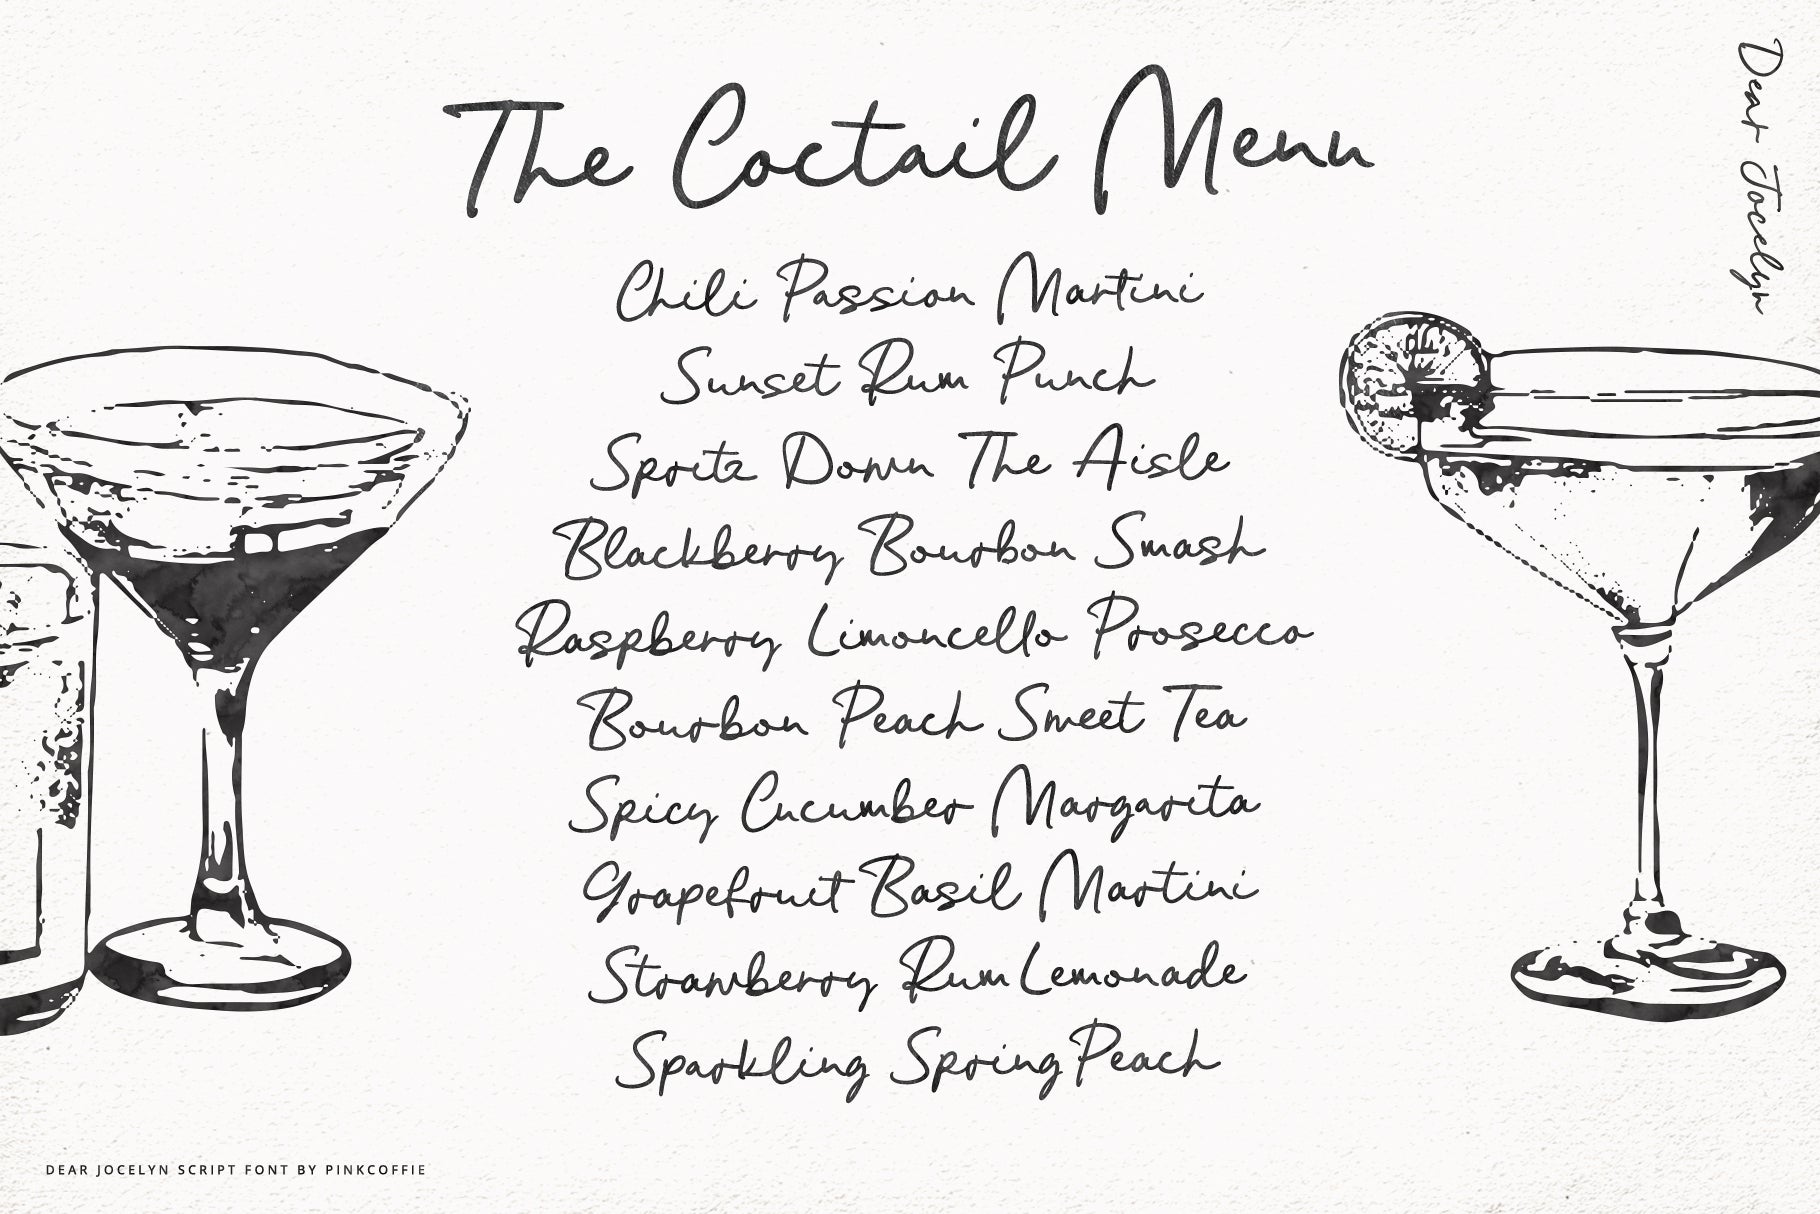 The Coctail Menu
Dear Jocelyn
Chili Passion Martini
Sunset Rum Punch
Spritz Down The Aisle
Blackberry Bourbon Smash
Raspberry Limoncello Prosecco
Bourbon Peach Sweet Tea
Spicy Cucumber Margarita
Grapefruit Basil Martini
Strawberry Rum Lemonade
Sparkling Spring Peach
DEAR JOCELYN SCRIPT FONT BY PINKCOFFIE